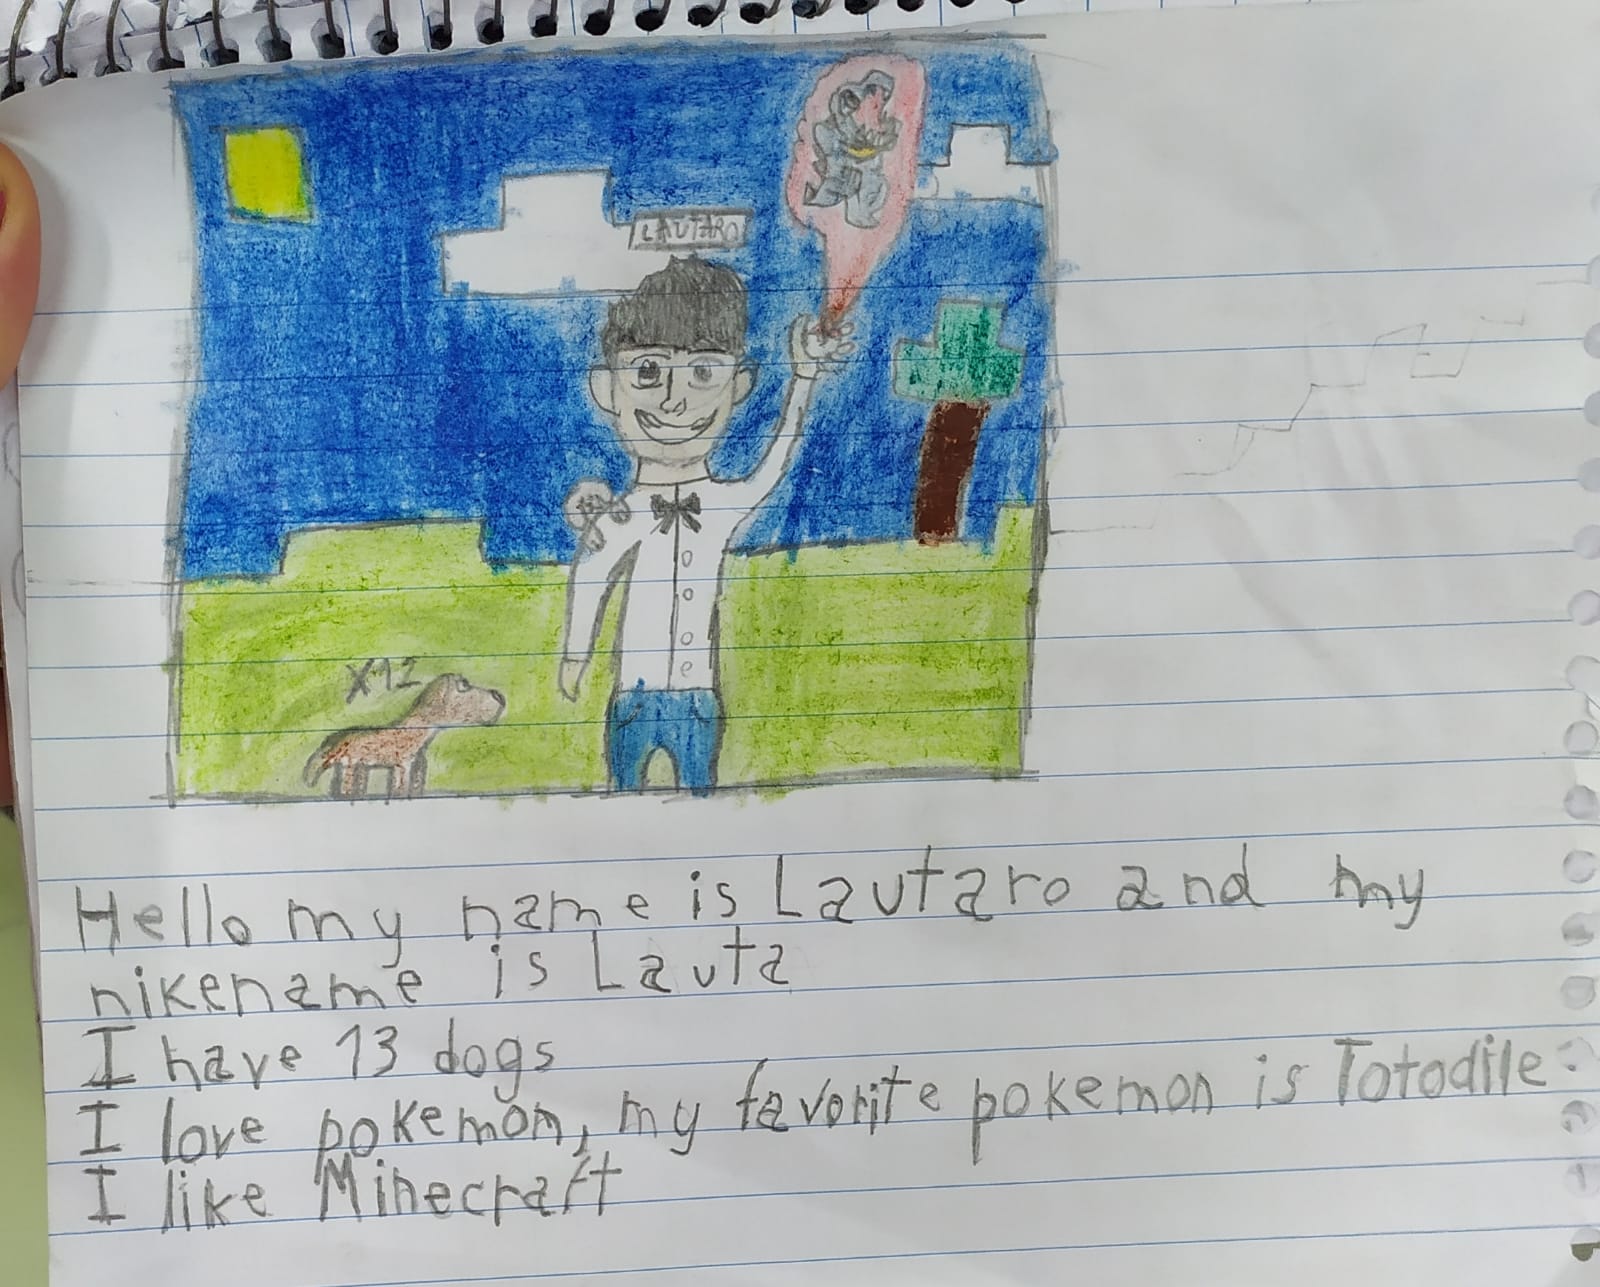 LAUTARO
X12
Hello my name is Lautaro and my
nikename is Lauta
I have 13 dogs
I love pokemon, my favorite pokemon is Totodile
I like Minecraft